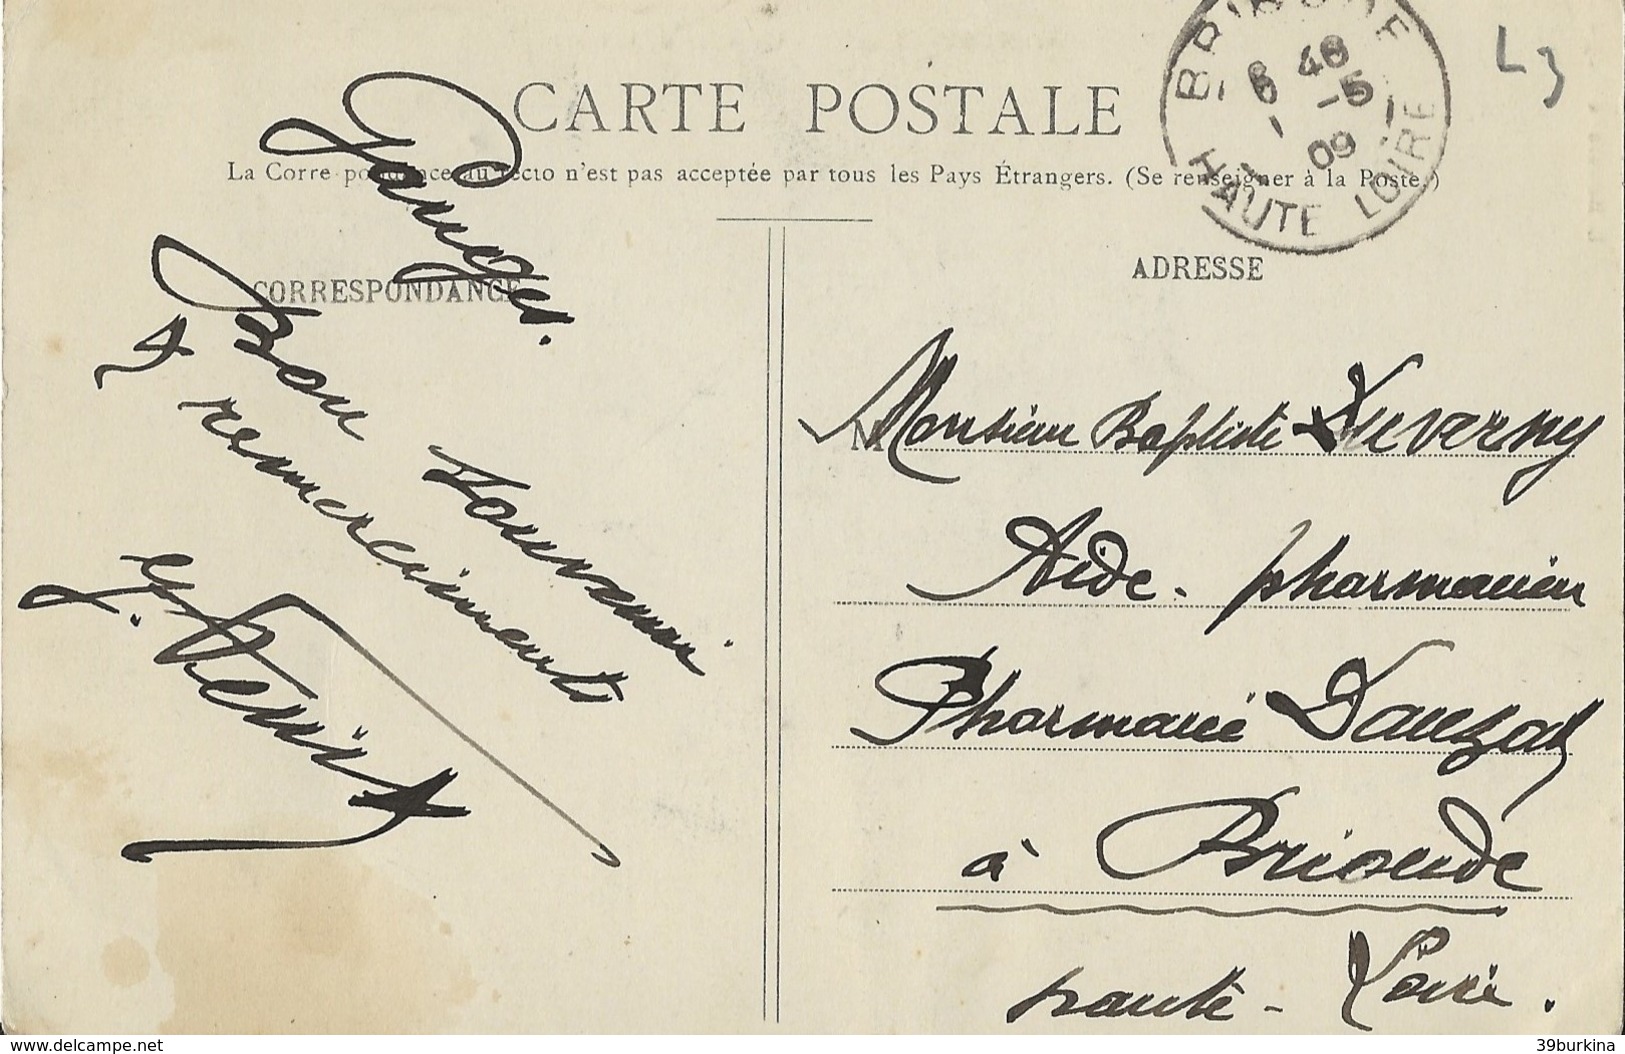 CARTE POSTALE
La Correspondance du recto n'est pas acceptée par tous les Pays Étrangers. (Se renseigner à la Poste.)
BRIOUDE
6 48
6 -5
09
HAUTE LOIRE
L3
CORRESPONDANCE
Ganges.
Bon souvenir
& remerciements
ADRESSE
M
Monsieur Baptiste Duverny
Aide-pharmacien
Pharmacie Dauzat
à Brioude
haute-Loire.
www.delcampe.net
39burkina